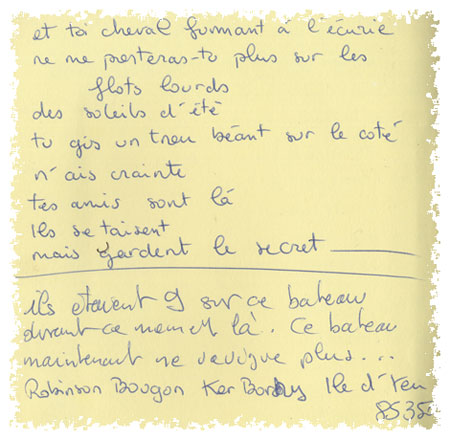 et toi cheval fumant à l'écurie
ne me porteras-tu plus sur les
flots lourds
des soleils d'été
tu gis un trou béant sur le coté
n'ais crainte
tes amis sont là
Ils se taisent
mais gardent le secret
ils etaient 9 sur ce bateau
durant ce moment là. Ce bateau
maintenant ne navigue plus...
Robinson Bougon Ker Île d'Yeu
85350